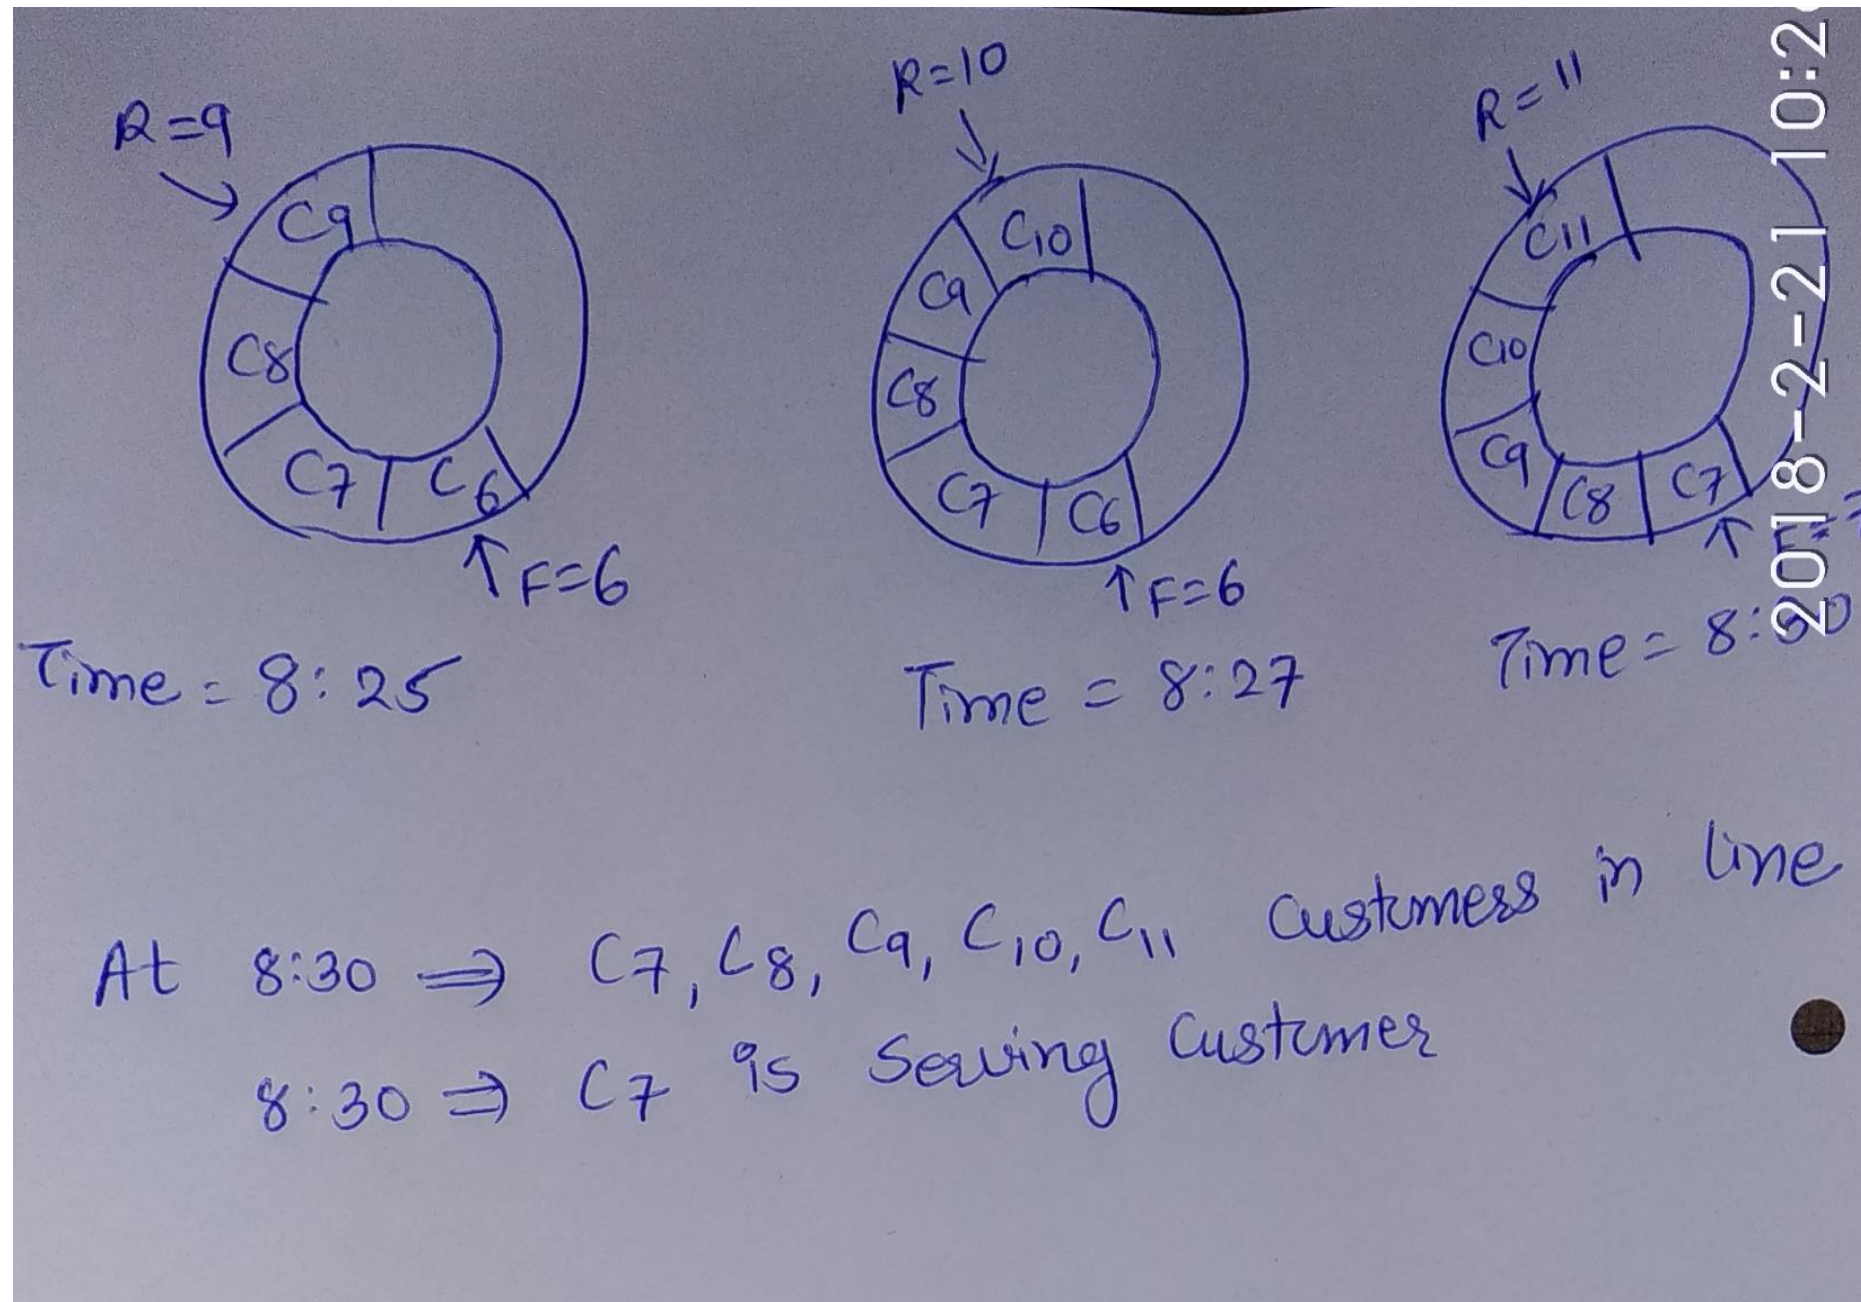 R=9
C9
C8
C7
C6
F=6
Time = 8:25
R=10
C10
C9
C8
C7
C6
F=6
Time = 8:27
R=11
C11
C10
C9
C8
C7
Time = 8:30
2018-2-21 10:2
At 8:30 ⇒ C7, C8, C9, C10, C11 Customers in line
8:30 ⇒ C7 is Serving Customer